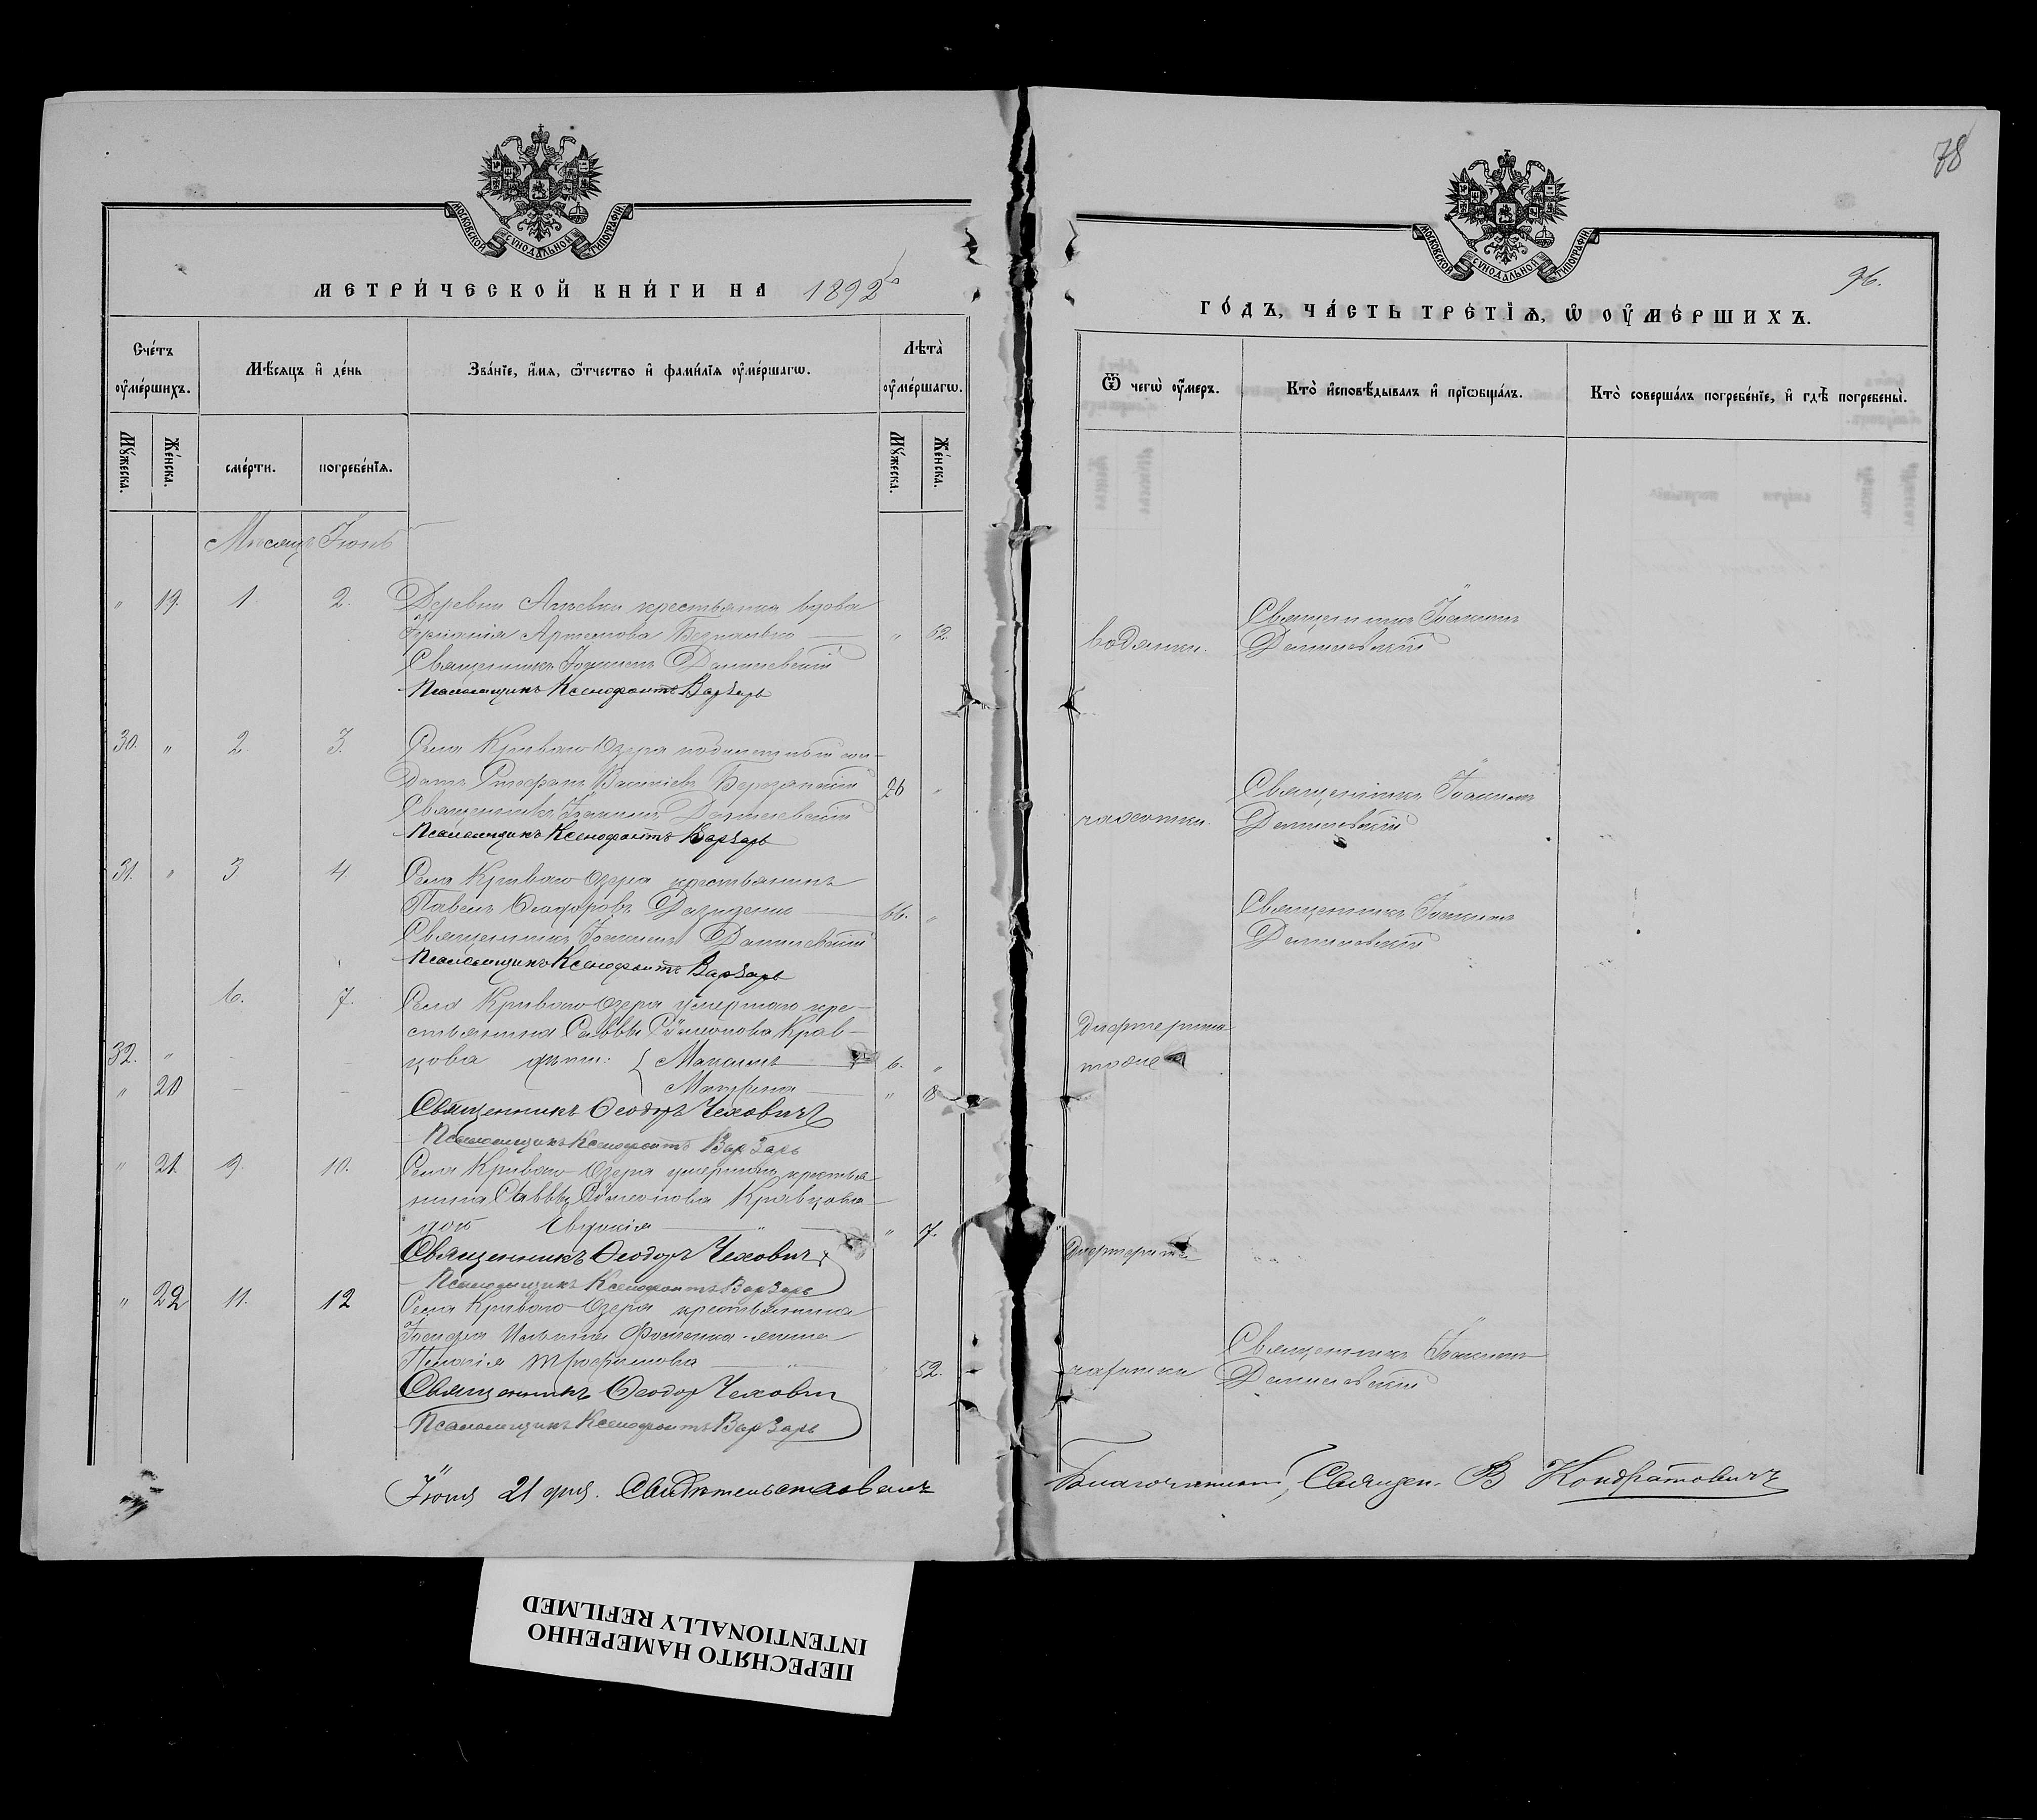 78
МОСКОВСКОЙ СУНОДАЛЬНОЙ ТИПОГРАФІИ
МЕТРИ́ЧЕСКОЙ КНИ́ГИ НА 1892
Сче́тъ ᲂу҆ме́ршихъ.
Мꙋ́жеска.
Же́нска.
Мѣ́сяцъ и҆ де́нь
сме́рти.
погребе́нїѧ.
Зва́нїе, и҆́мѧ, ѻ҆́тчество и҆ фами́лїѧ ᲂу҆ме́ршагѡ.
Лѣта̀ ᲂу҆ме́ршагѡ.
Мꙋ́жеска.
Же́нска.
Мѣсяцъ Іюнь
" 19. 1 2. Деревни крестьянка вдова
Артемова " 62.
Священникъ Іоакимъ Данилевскій
Псаломщикъ Ксенофонтъ Варзарь
30. " 2. 3. Села Криваго Озера
датъ Стефанъ Василіевъ 26 "
Священникъ Іоакимъ Данилевскій
Псаломщикъ Ксенофонтъ Варзарь
31. " 3 4 Села Криваго Озера крестьянинъ
Павелъ Ѳеодоровъ 66. "
Священникъ Іоакимъ Данилевскій
Псаломщикъ Ксенофонтъ Варзарь
6. 7. Села Криваго Озера умершаго кре-
стьянина Саввы Сѵмеонова Крав-
32. " цова дѣти: Максимъ 6. "
" 20 8
Священникъ Ѳеодоръ Чехович
Псаломщикъ Ксенофонтъ Варзарь
" 21. 9. 10. Села Криваго Озера умершаго крестья
нина Саввы Сѵмеонова Кравцова
дочь Евдокія " " 7.
Священникъ Ѳеодоръ Чехович
Псаломщикъ Ксенофонтъ Варзарь
" 22 11. 12 Села Криваго Озера крестьянина
Іосифа жена
Пелагія Трофимова " 52.
Священникъ Ѳеодор Чехович
Псаломщикъ Ксенофонтъ Варзарь
Іюня 21 дня. Свидѣтельствовалъ
МОСКОВСКОЙ СУНОДАЛЬНОЙ ТИПОГРАФІИ
96.
ГО́ДЪ, ЧА́СТЬ ТРЕ́ТЇѦ, Ѡ҆ ОУ҆МЕ́РШИХЪ.
Ѿ чегѡ̀ ᲂу҆́меръ.
Кто̀ и҆сповѣ́дывалъ и҆ прїѡбща́лъ.
Кто̀ соверша́лъ погребе́нїе, и҆ гдѣ̀ погребены̀.
водянки. Священникъ Іоакимъ
Данилевскій
чахотки. Священникъ Іоакимъ
Данилевскій
Священникъ Іоакимъ
Данилевскій
Дифтерита
тоже
Дифтерита
Священникъ Іоакимъ
Данилевскій
Благочинный, Священ. В Кондратовичъ
ПЕРЕСНЯТО НАМЕРЕННО
INTENTIONALLY REFILMED